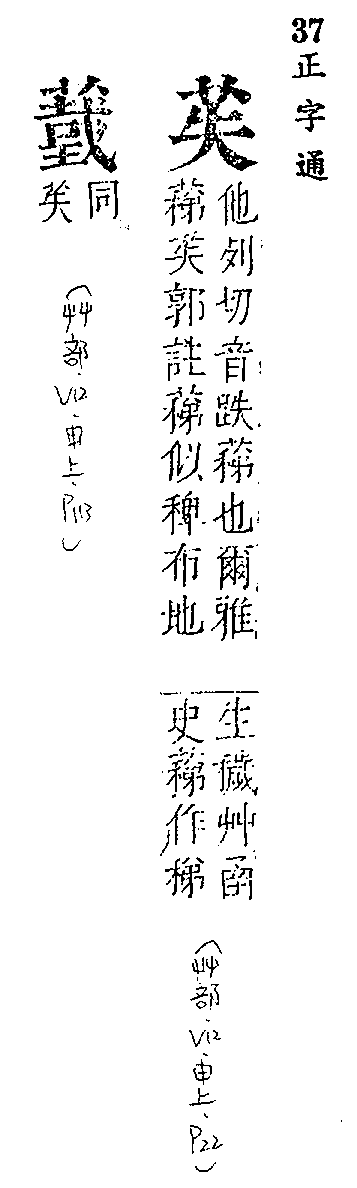 37正字通
苵
他列切音跌蕛也爾雅
蕛苵郭註蕛似稗布地
生穢艸函
史蕛作稊
(艸部、V12、申上、P22)
同
苵
(艸部、V12、申上、P113)